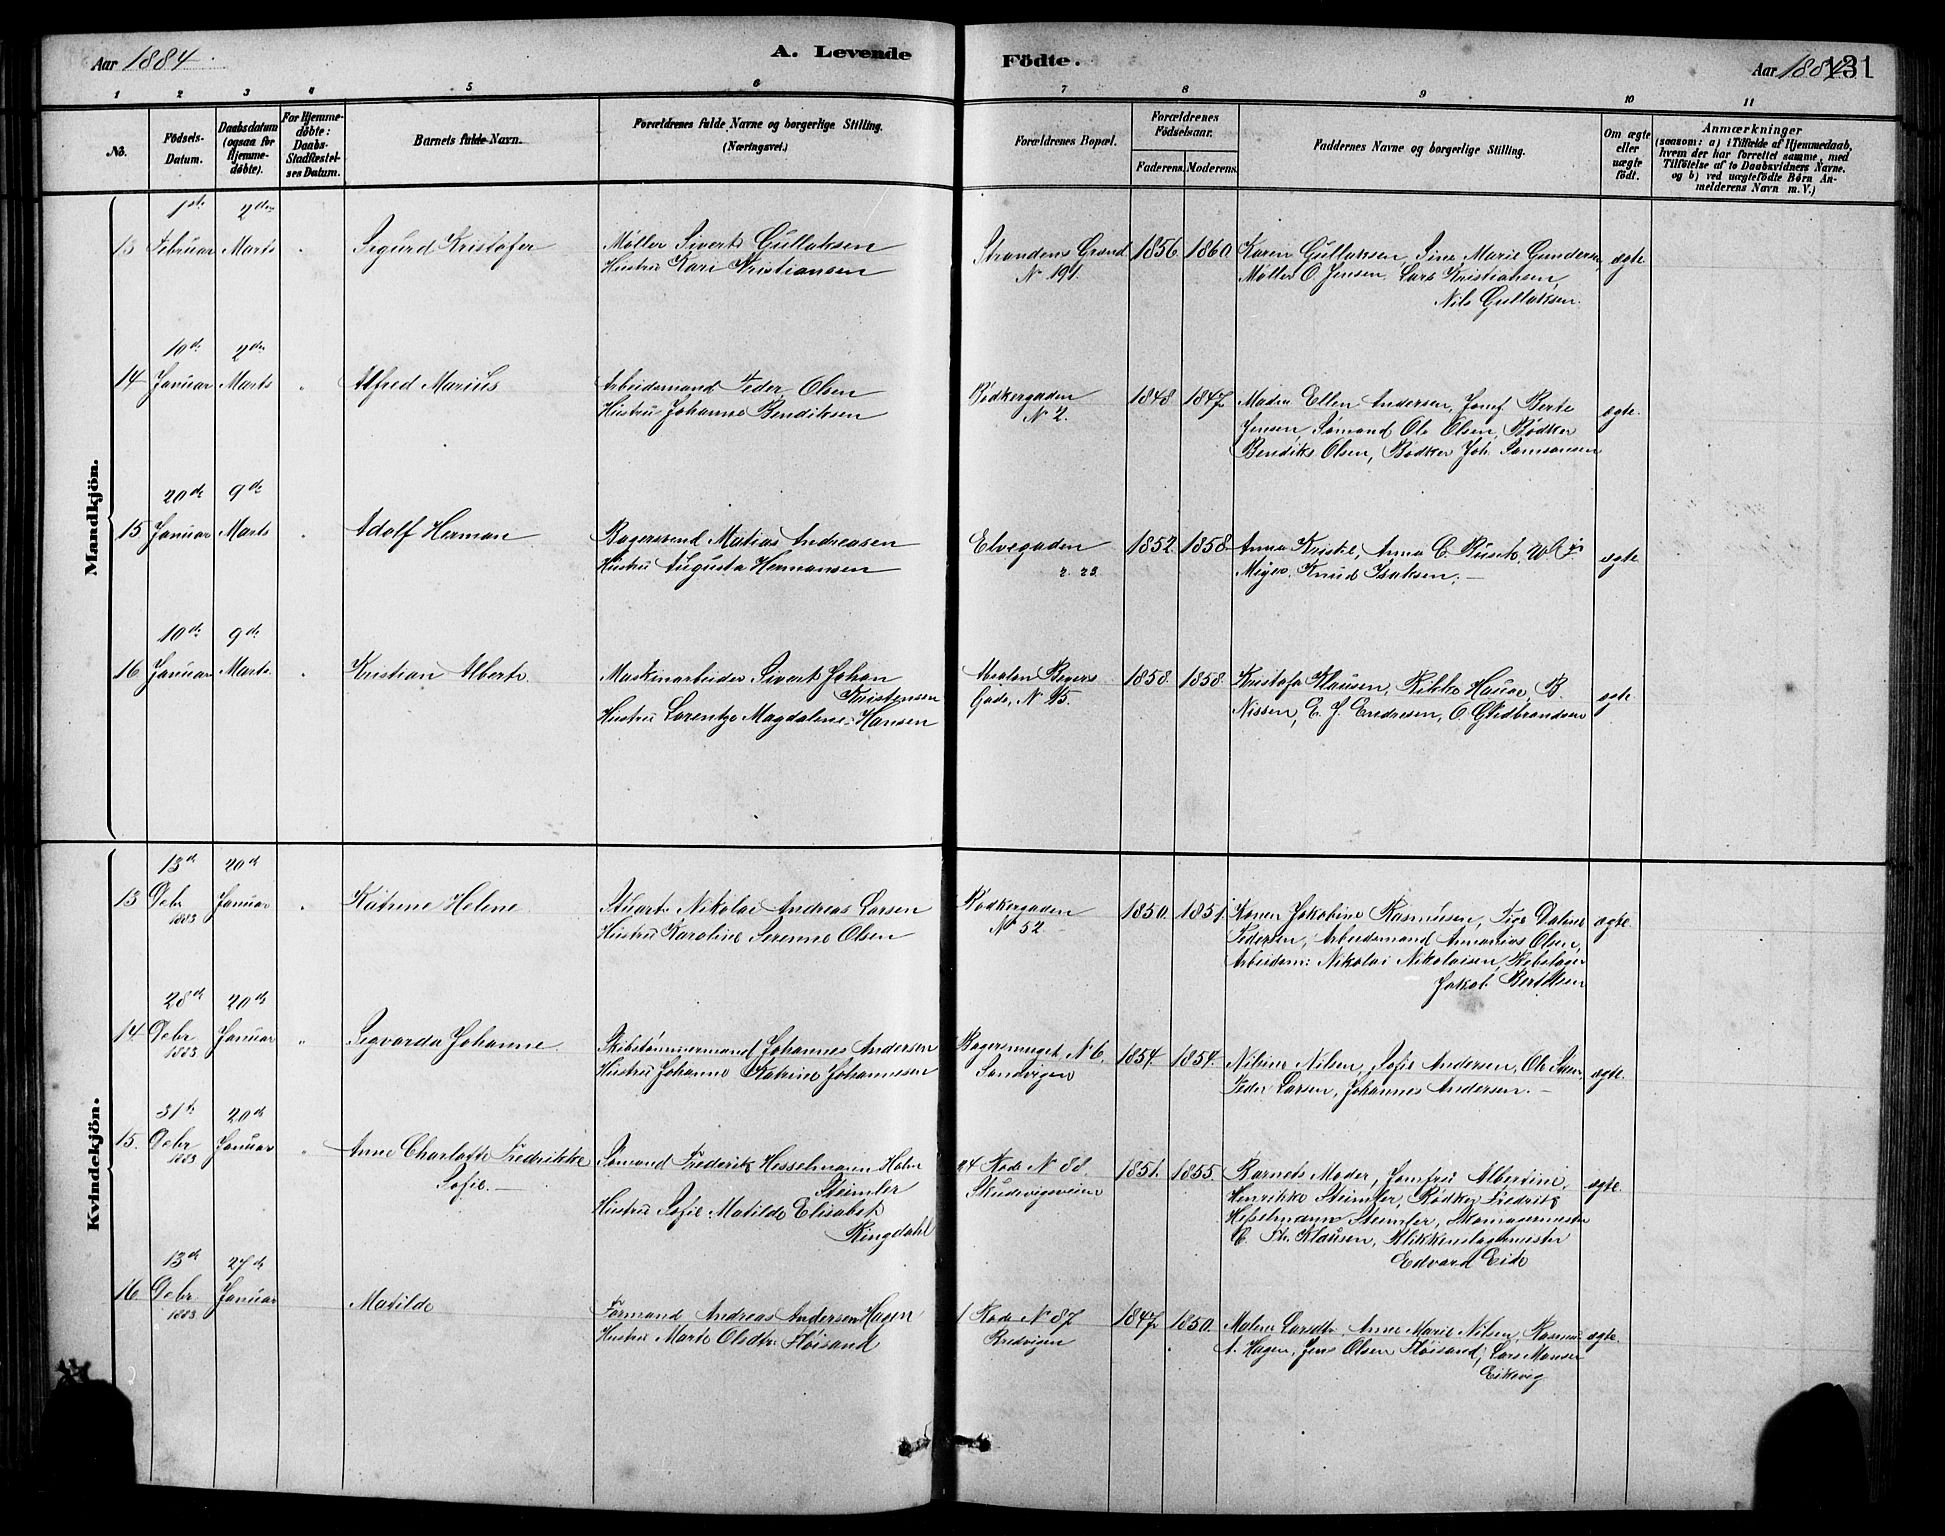 Aar 1884.
A. Levende
Födte.
Aar 1884
131
1 2 3 4 5 6 7 8 9 10 11
No.
Födsels-Datum.
Daabsdatum (ogsaa for Hjemme-døbte).
For Hjemme-døbte: Daabs-Stadfæstel-ses Datum.
Barnets fulde Navn.
Forældrenes fulde Navne og borgerlige Stilling.
(Næringsvei.)
Forældrenes Bopæl.
Forældrenes Födselsaar.
Faderens. Moderens.
Faddernes Navne og borgerlige Stilling.
Om ægte eller uægte födt.
Anmærkninger
(saasom: a) i Tilfælde af Hjemmedaab,
hvem der har forrettet samme, med
Tilföielse af to Daabsvidners Navne.
og b) ved uægtefödte Børn An-
melderens Navn m. V.)
Mandkjön.
1de 2den
13 Februar Marts " Sigurd Kristofer Møller Sivert Gullaksen Strandens Grænd 1856. 1860. Karen Gullaksen, Sina Marie Gundersen, ægte.
Hustru Kari Kristiansen N 191. Møller O Jensen, Lars Kristiansen,
Nils Gullaksen.
10de 2den
14 Januar Marts " Alfred Marius Arbeidsmand Peder Olsen Bødkergaden 1848. 1847 Madm Ellen Andersen, Jomf. Berte ægte.
Hustru Johanne Bendiksen N 2. Jensen, Sømand Ole Olsen, Bødker
Bendiks Olsen, Bødker Joh. Samsonsen
20de 9de
15 Januar Marts " Adolf Herman Bagersvend Matias Andreasen Elvegaden 1852. 1858. Anna Kristie, Anna C. Busch, ægte
Hustru Augusta Hermansen r. 23. Meyer, Knud Isaksen.
10de 9de
16 Januar Marts. " Kristian Albert. Maskinarbeider Sivert Johan Absalon Beyers 1858. 1858. Kristofa Klausen, Rikke Hauge, B. ægte.
Kristensen Gade, N 45.
Hustru Lorentze Magdalene Hansen Nissen, E. J. Endresen, O. Guldbrandsen
Kvindekjön.
13de 20de
13 Debr 1883 Januar " Katrine Helene Stuart Nikolai Andreas Larsen Bødkergaden 1850. 1851. Konen Jakobine Rasmussen, Pige Daline ægte.
Hustru Karoline Serenne Olsen N 52 Pedersen, Arbeidsmand Ananias Olsen,
Arbeidsm: Nikolai Nikolaisen, Rebslager
Jakob Bertelsen
28de 20de
14. Debr 1883 Januar " Sigvarda Johanne. Skibstømmermand Johannes Andersen Bagersmuget N 6. 1854. 1854. Nilsine Nilsen, Sofie Andersen, Ole ægte.
Hustru Johanne Katrine Johannesen Sandvigen Peder Larsen, Johannes Andersen.
31te 20de
15. Debr 1883 Januar " Anne Charlotte Fredrikke Sømand Frederik Hesselmann Holm 24 Rode N 88 1851. 1855. Barnets Moder, Jomfru Albertine ægte.
Sofie. Steimler Skudevigsveien Henrikke Steimler, Bødker Fredrik
Hustru Sofie Matilde Elisabet Hesselmann Steimler, Skomagermester
Ringdahl C. Fr. Klausen, Blikkenslagermester
Edvard Eide
13de 27de
16. Debr. 1883. Januar Matilde Formand Andreas Andersen Hagen 1 Rode N 87 1847 1850. Malene Larsdtr. Anne Marie Nilsen, Rasmus ægte.
Hustru Marte Olsdtr. Fløisand Bredvigen A. Hagen, Jens Olsen Fløisand, Lars Monsen
Eikevig